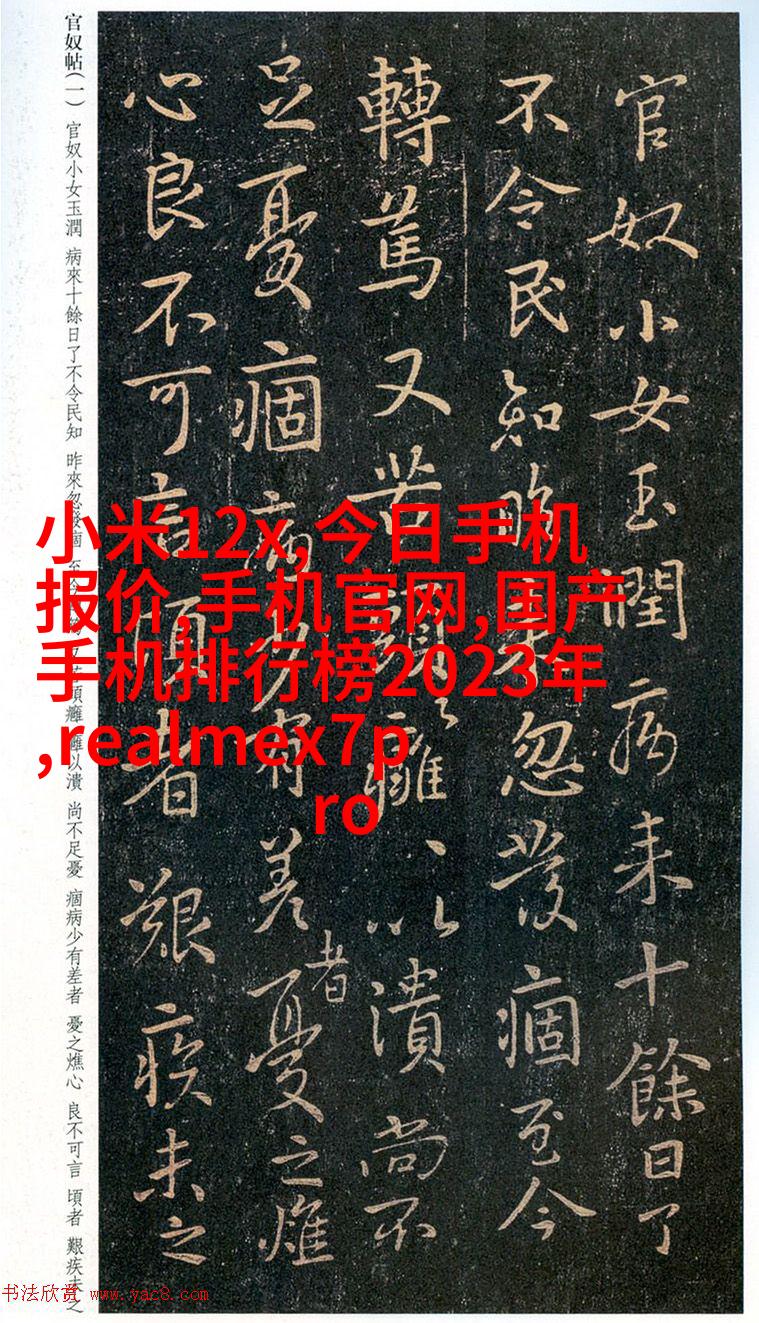 官奴小女玉潤病来十餘日了
不令民知昨来忽發痼至今
轉篤又苦頭癰、以潰尚不
足憂痼病少有差者憂之燋
心良不可言頃者艱疾未之
官奴帖(一) 官奴小女玉潤 病來十餘日了不令民知 昨來忽發痼 至今轉篤又苦頭癰 癰以潰 尚不足憂 痼病少有差者 憂之燋心 良不可言 頃者 艱疾未之
小米12x,今日手机
报价,手机官网,国产
手机排行榜2023年
,realmex7p
ro
书法欣赏 www.yac8.com